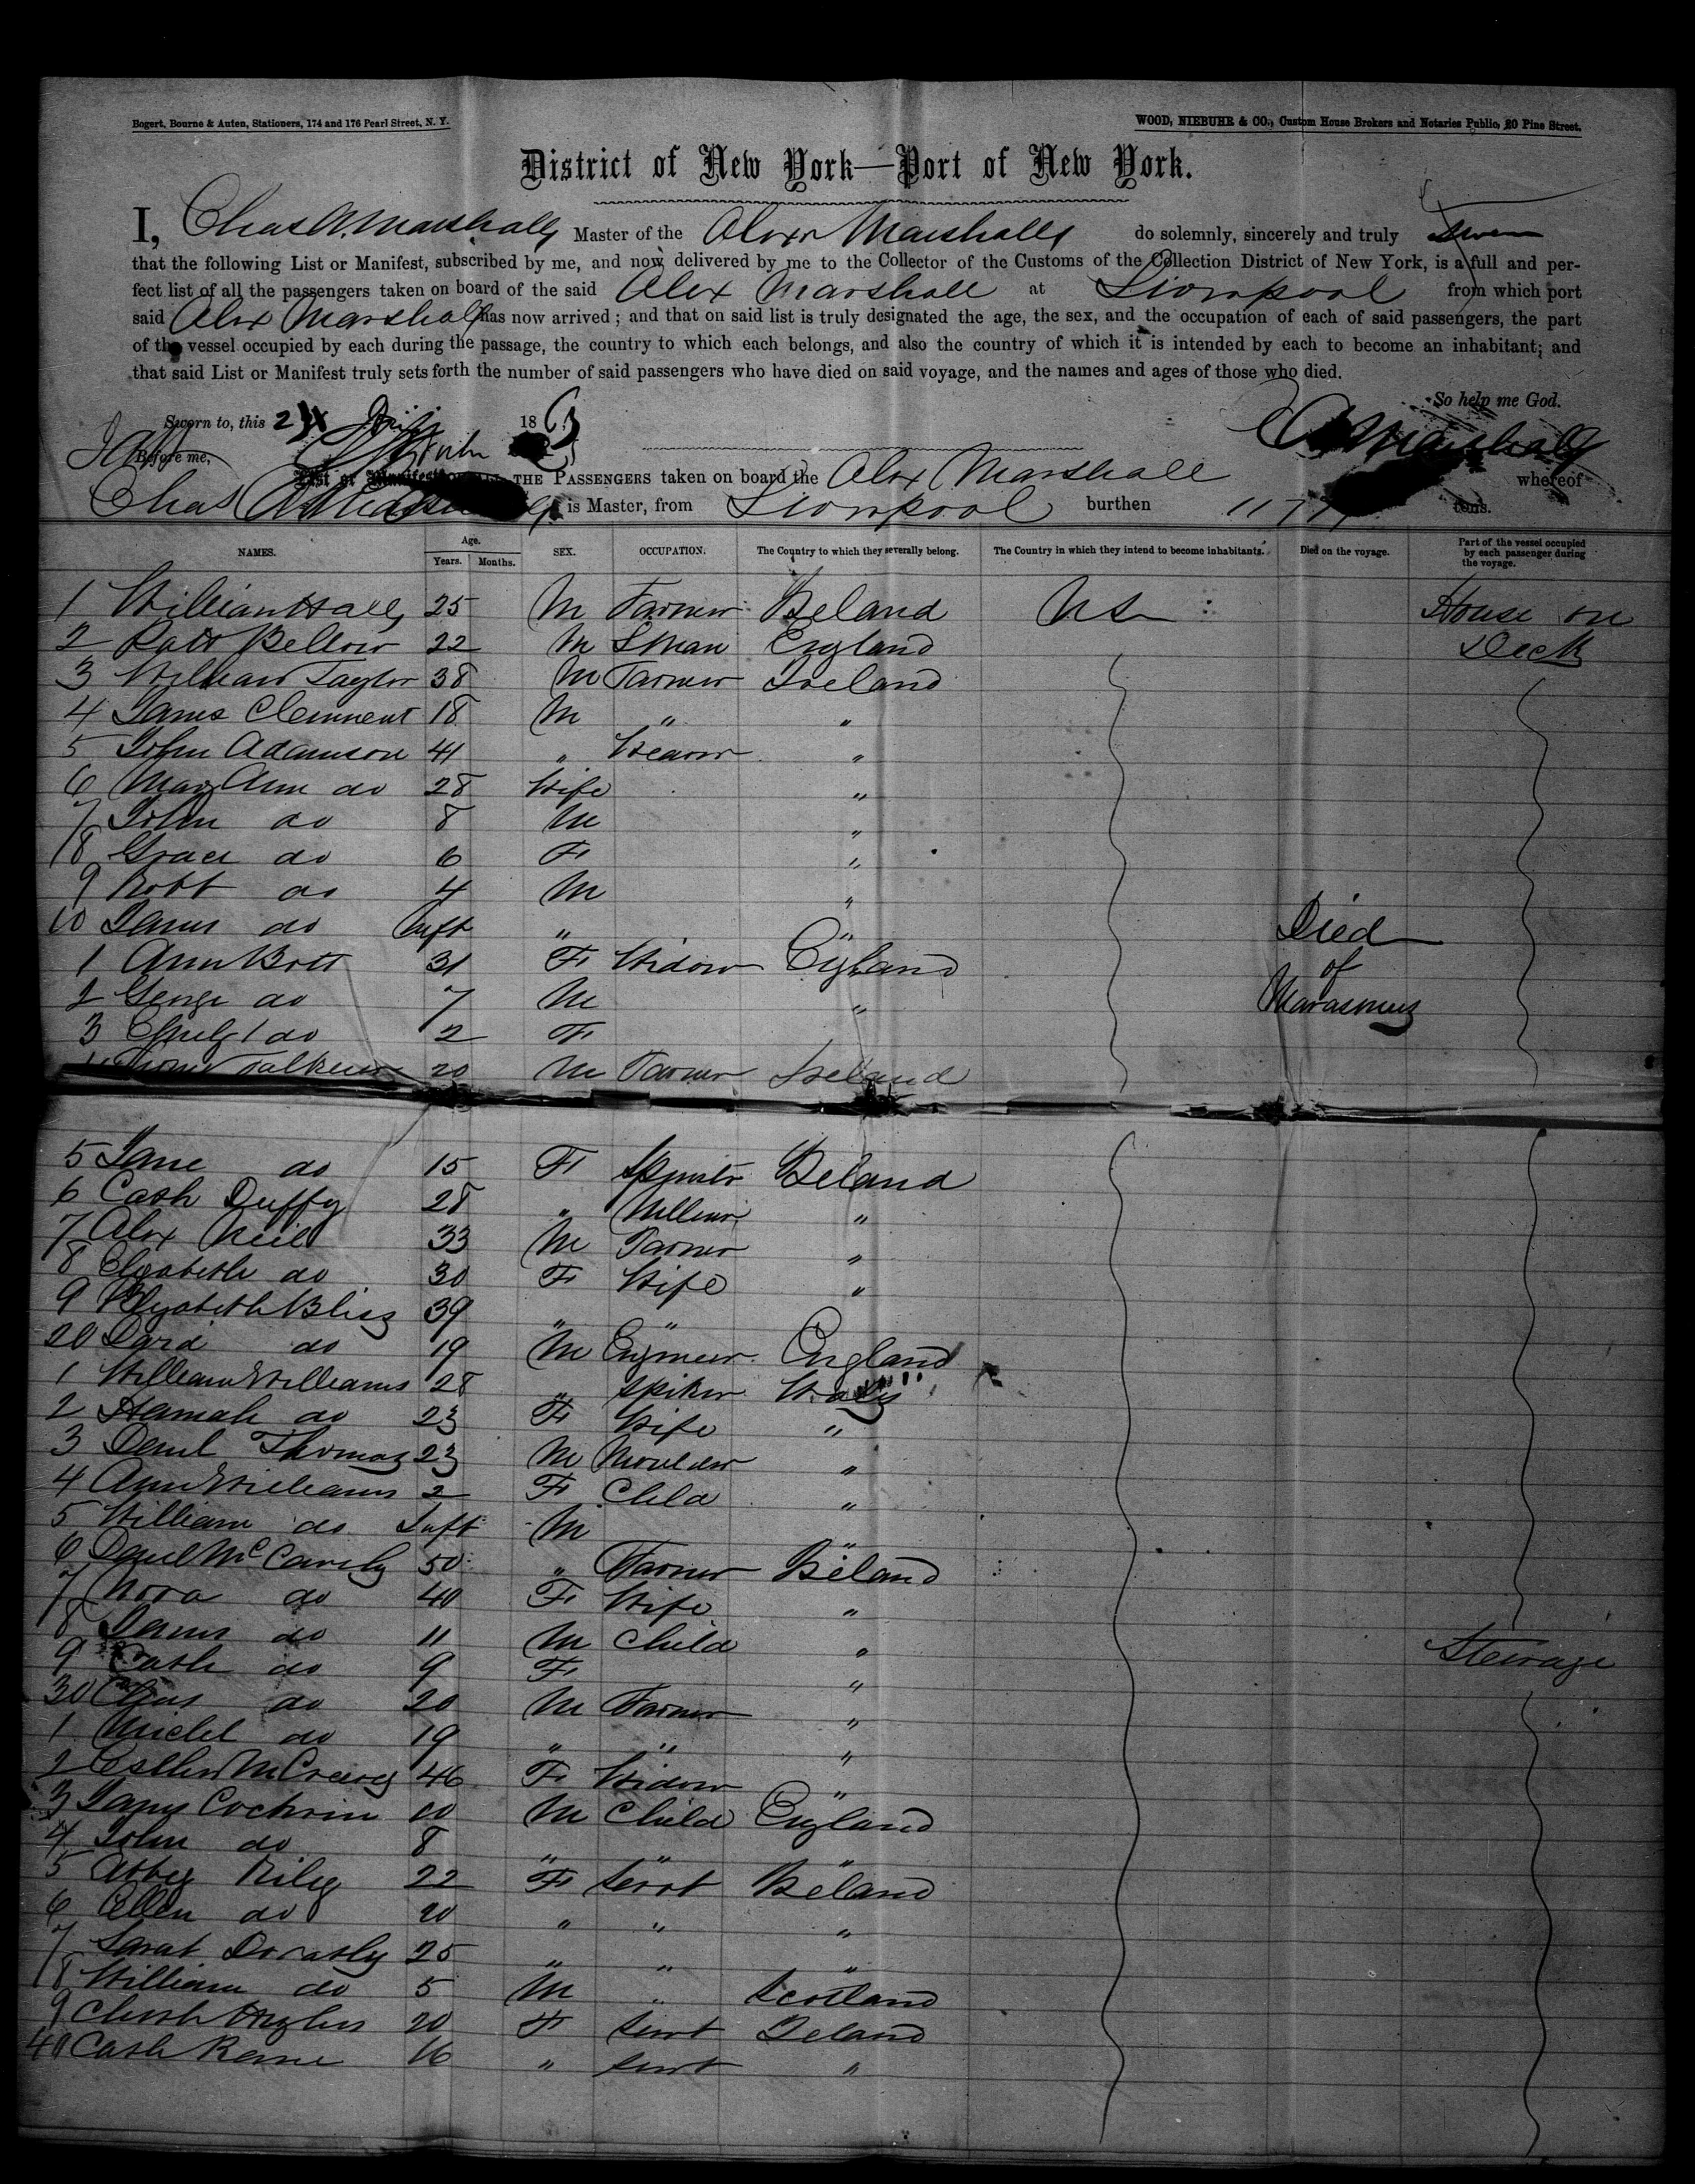 Bogert, Bourne & Auten, Stationers, 174 and 176 Pearl Street, N. Y. WOOD, NIEBUHR & CO., Custom House Brokers and Notaries Public, 20 Pine Street.
District of New York—Port of New York.
I, Chas A. Marshall Master of the Alexr Marshall do solemnly, sincerely and truly Swear
that the following List or Manifest, subscribed by me, and now delivered by me to the Collector of the Customs of the Collection District of New York, is a full and per-
fect list of all the passengers taken on board of the said Alex Marshall at Liverpool from which port
said Alex Marshall has now arrived; and that on said list is truly designated the age, the sex, and the occupation of each of said passengers, the part
of the vessel occupied by each during the passage, the country to which each belongs, and also the country of which it is intended by each to become an inhabitant; and
that said List or Manifest truly sets forth the number of said passengers who have died on said voyage, and the names and ages of those who died.
So help me God.
Sworn to, this 18 63 CA Marshall
Before me,
List or Manifest OF ALL THE PASSENGERS taken on board the Alex Marshall whereof
Chas A Marshall is Master, from Liverpool burthen 1177 tons.
NAMES. Age. Years. Months. SEX. OCCUPATION. The Country to which they severally belong. The Country in which they intend to become inhabitants. Died on the voyage. Part of the vessel occupied by each passenger during the voyage.
1 William Hall 25 M Farmer Ireland US House on
2 Patt Bellew 22 M England Deck
3 William Taylor 38 M Farmer Ireland
4 James Clemment 18 M " "
5 John Adamson 41 " Weaver "
6 Mary Ann do 28 Wife "
7 John do 8 M "
8 Grace do 6 F "
9 Robt do 4 M "
10 James do Inft " " Died
1 Ann Bott 31 F Widow England of
2 George do 7 M " Marasmus
3 do 2 F
4 Falkener 20 M Farmer Ireland
5 Jane do 15 F Spinster Ireland
6 Cath Duffy 28 " Milliner "
7 Alex Neil 33 M Farmer "
8 Elizabeth do 30 F Wife "
9 Elizabeth Bliss 39 " "
20 do 19 M Engineer England
1 William Williams 28 " Wales
2 Hannah do 23 F Wife "
3 Danl Thomas 23 M Moulder "
4 Ann Williams 2 F Child "
5 William do Inft M "
6 Danl 50 " Farmer Ireland
7 Nora do 40 F Wife "
8 James do 11 M Child " Steerage
9 Cath do 9 F "
30 do 20 M Farmer "
1 Michl do 19 " " "
2 Esther McCreavy 46 F Widow "
3 James Cochrin 10 M Child England
4 John do 8 " "
5 Abbey Riley 22 F Servt Ireland
6 Ellen do 20 " " "
7 Sarah 25 " " "
8 William do 5 M " Scotland
9 Hughes 20 F Servt Ireland
40 Cath 16 " Servt "